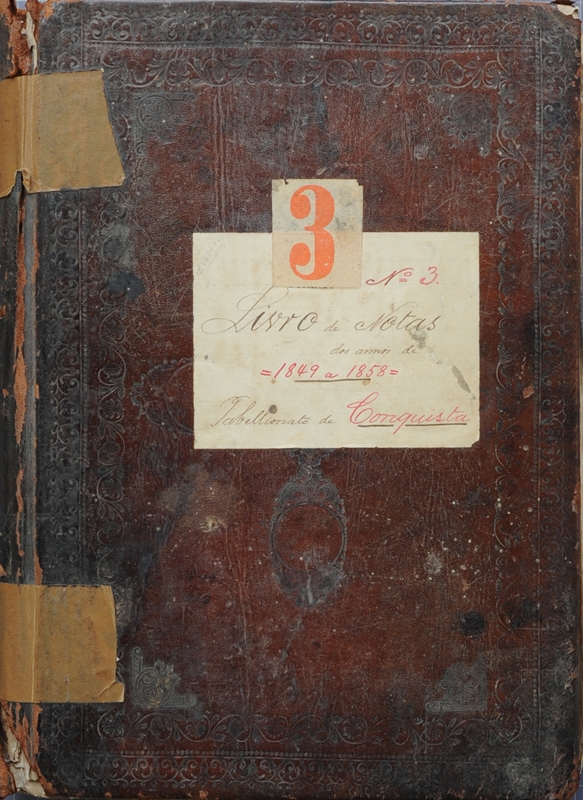 3
Nº 3.
Livro de Notas
dos annos de
=1849 a 1858=
Tabellionato de Conquista